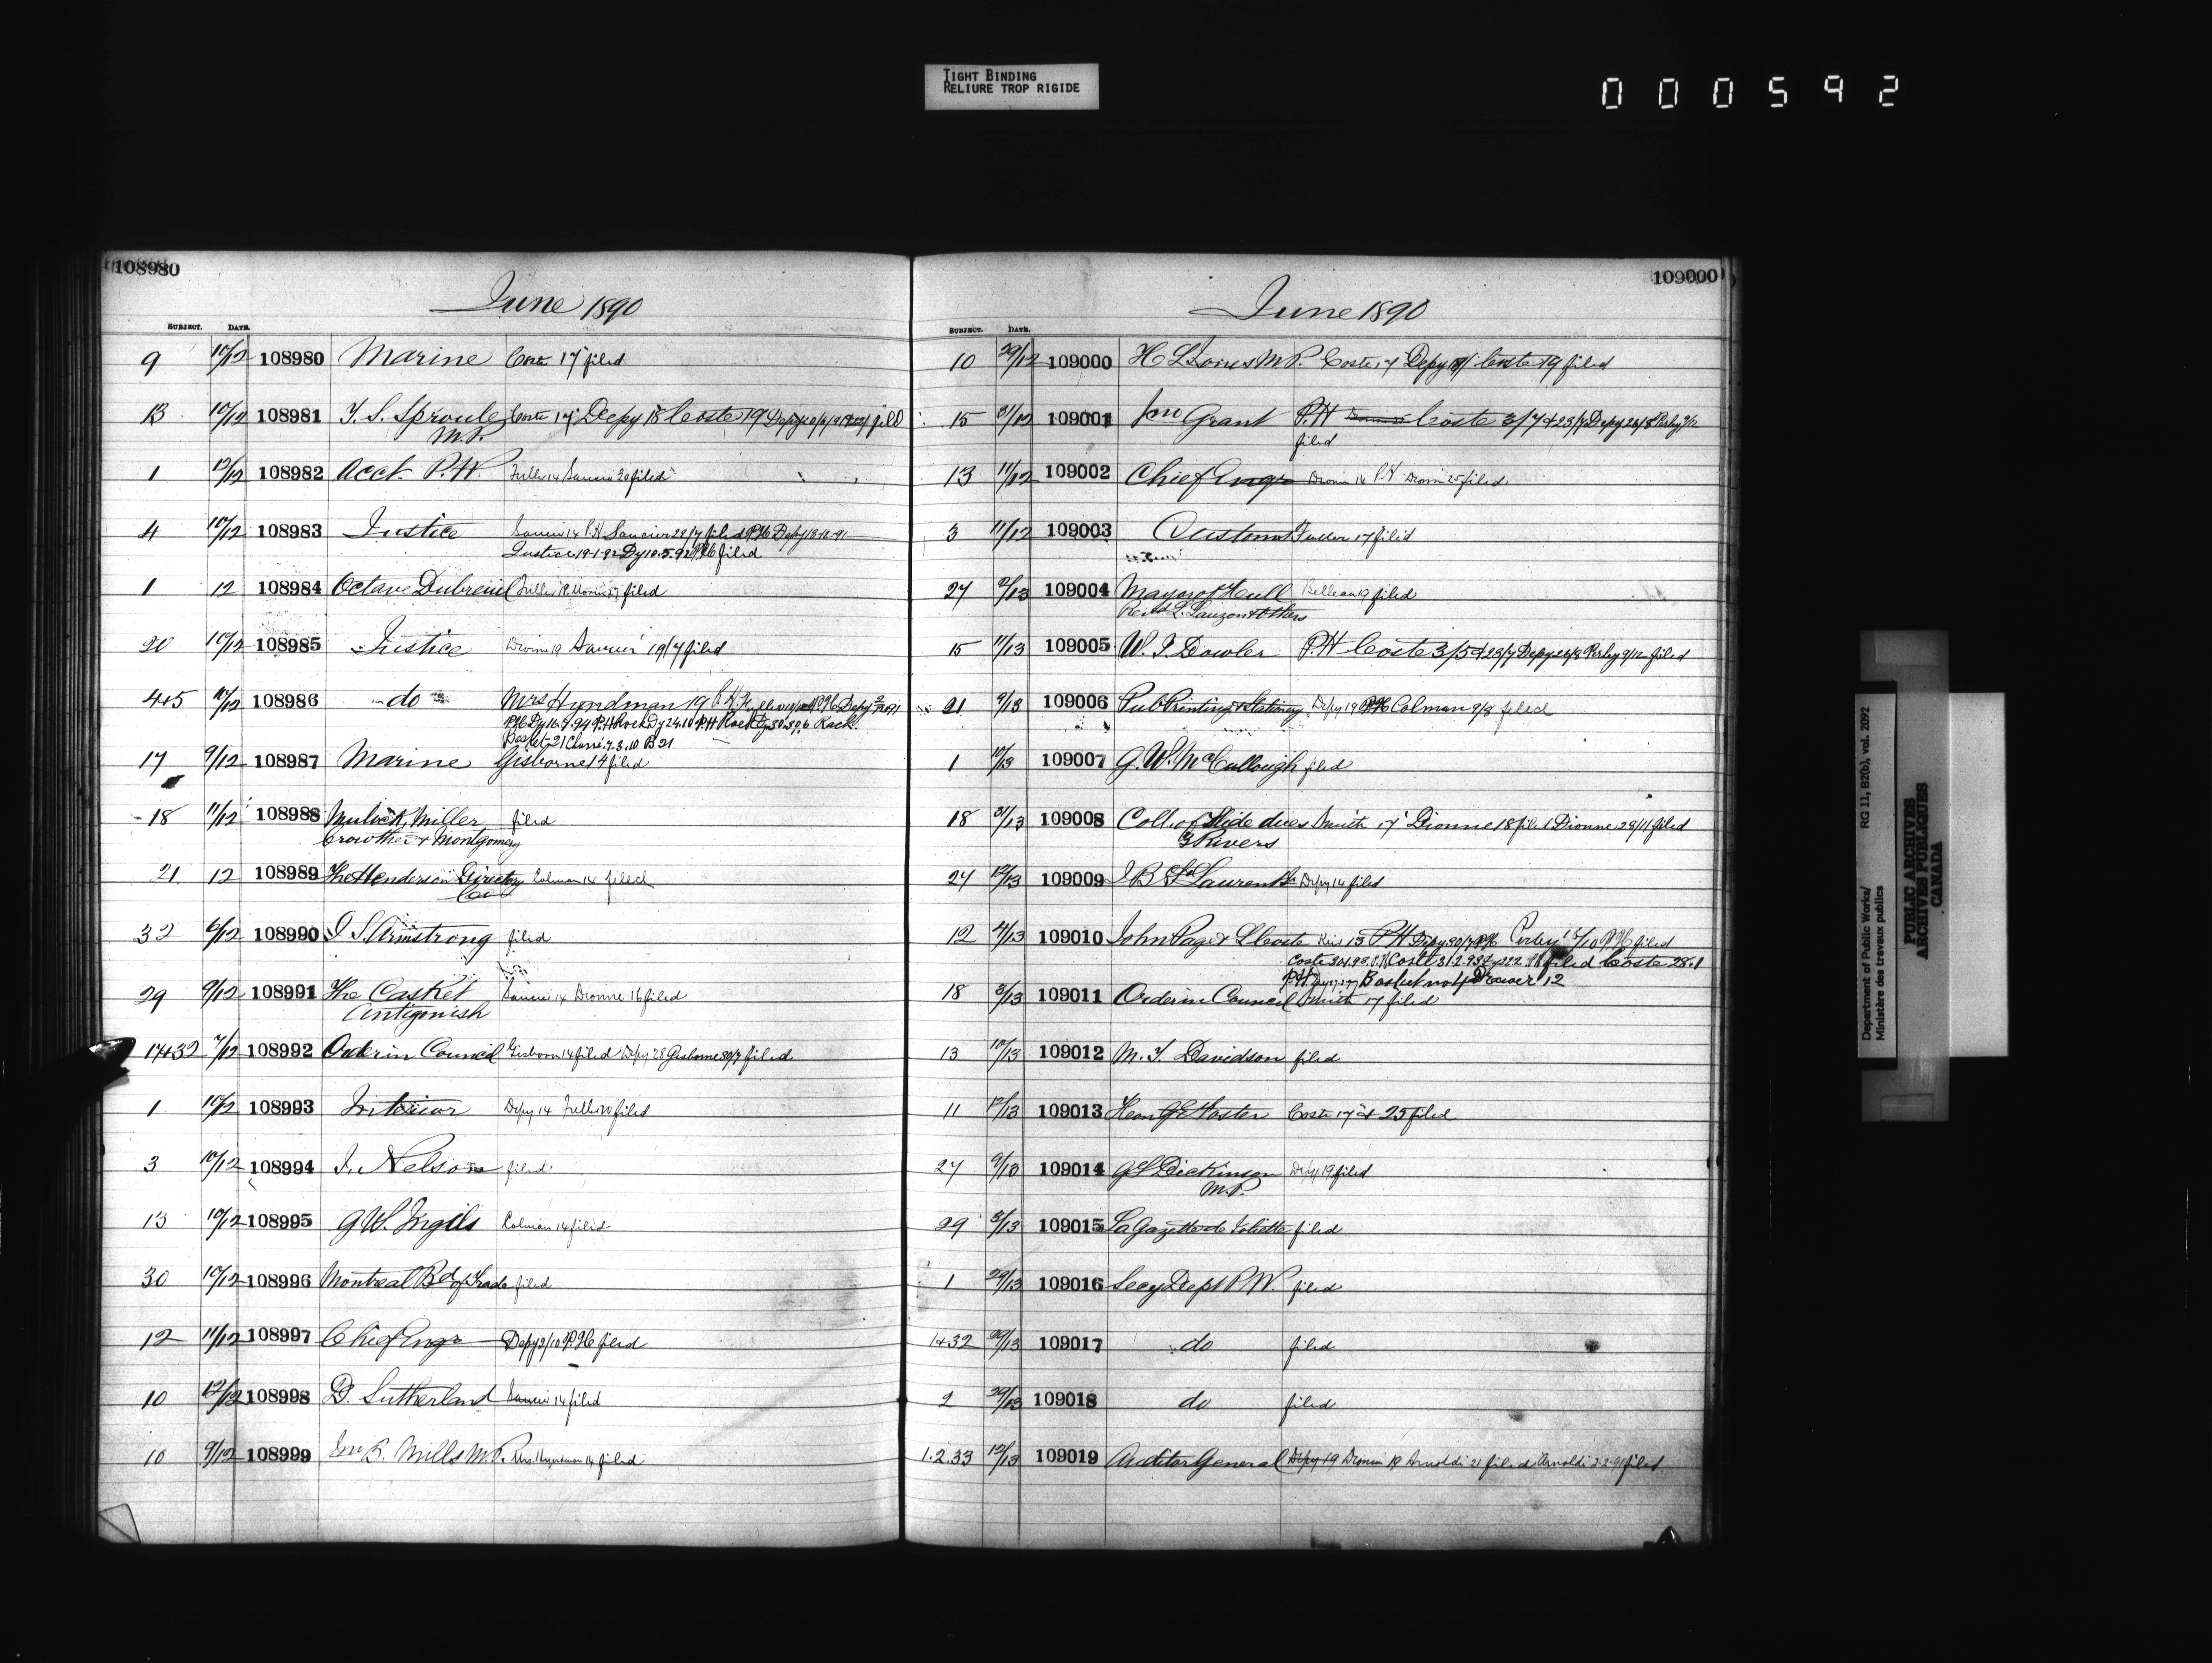 TIGHT BINDING
RELIURE TROP RIGIDE
000592
108980
June 1890
SUBJECT. DATE.
9 10/12 108980 Marine Coste 17 filed
13 10/12 108981 T. S. Sproule Coste 17 Depy 18 Coste 19 filed
M.P.
1 12/12 108982 Acct P.W. Fuller 14 30 filed
4 10/12 108983 Justice 14 P.H 22/7 filed P.H Depy 18-12-91
Justice 19-1-92 Dy 10.5.92 P.H filed
1 12 108984 Octave Dubreuil filed
20 10/12 108985 Justice Dionne 19 19/7 filed
4+5 10/12 108986 do Mrs Hyndman 19 P.H. Depy
P.H Rock Dy 24.10 P.H Rock Rock
Basket 21 7.3.10 B 21
17 9/12 108987 Marine Gisborne 14 filed
18 11/12 108988 Mulock, Miller filed
Crowther & Montgomery
21 12 108989 The Henderson Directory Colman 14 filed
Co
32 6/12 108990 J S Armstrong filed
29 9/12 108991 The Casket 14 Dionne 16 filed
Antigonish
17+32 7/12 108992 Order in Council Gisborn 14 filed Depy 28 Gisborne 30/7 filed
1 10/12 108993 Interior Depy 14 Fuller filed
3 10/12 108994 J. Nelson filed
13 10/12 108995 G W. Ingils Colman 14 filed
30 10/12 108996 Montreal Bd of Trade filed
12 11/12 108997 Chief Engr Depy 2/10 P.H filed
10 12/12 108998 D. Sutherland 14 filed
10 9/12 108999 Jno B. Mills M.P. Mrs. Hyndman 14 filed
109000
June 1890
SUBJECT. DATE.
10 29/12 109000 H L Jones M P. Coste 17 Depy 18 Coste 19 filed
15 31/12 109001 Jno Grant P.H Coste 3/7 & 23/7 Depy 26/8 Perley 9/12
filed
13 11/12 109002 Chief Engr Dionn 14 P.H Dionn 25 filed
3 11/12 109003 Customs Fuller 17 filed
27 2/13 109004 Mayor of Hull Belleau 19 filed
Revd L. Lauzon & others
15 11/13 109005 W. J. Dowler P.H Coste 3/5 & 23/7 Depy 26/8 Perley 9/12 filed
21 9/13 109006 Pub Printing & Stationery Depy 19 P.H Colman 9/8 filed
1 10/13 109007 G. W. McCullough filed
18 31/13 109008 Coll. of Slide dues Smith 17 Dionne 18 filed Dionne 28/11 filed
3 Rivers
27 12/13 109009 J B St Laurent Depy 14 filed
12 4/13 109010 John Page & L Coste 13 P.H Depy 30/7 P.H Perley 15/10 P.H filed
Coste P.H Coste 31.2.93 filed Coste 28.1
P.H Basket no 4 Drawer 12
18 3/13 109011 Order in Council Smith 17 filed
13 10/13 109012 M. T. Davidson filed
11 12/13 109013 Hon G E Foster Coste 17 & 25 filed
27 9/13 109014 G L Dickinson Depy 19 filed
M.P.
29 3/13 109015 La Gazette de Joliette filed
1 29/13 109016 Secy Dept P W. filed
1+32 29/13 109017 do filed
2 29/13 109018 do filed
1.2.33 12/13 109019 Auditor General Depy 19 Dionn 19 Arnoldi 21 filed Arnoldi 2-2-91 filed
Department of Public Works/ RG 11, B2(b), vol. 2092
Ministère des travaux publics
PUBLIC ARCHIVES
ARCHIVES PUBLIQUES
CANADA